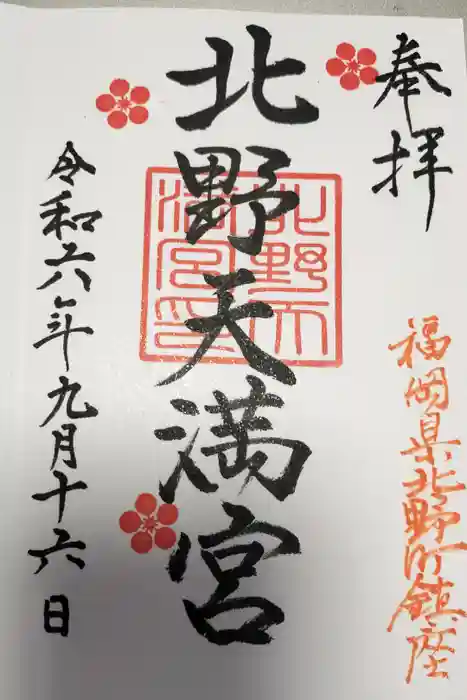 奉拝
福岡県北野町鎮座
北野天満宮
北野天満宮印
令和六年九月十六日